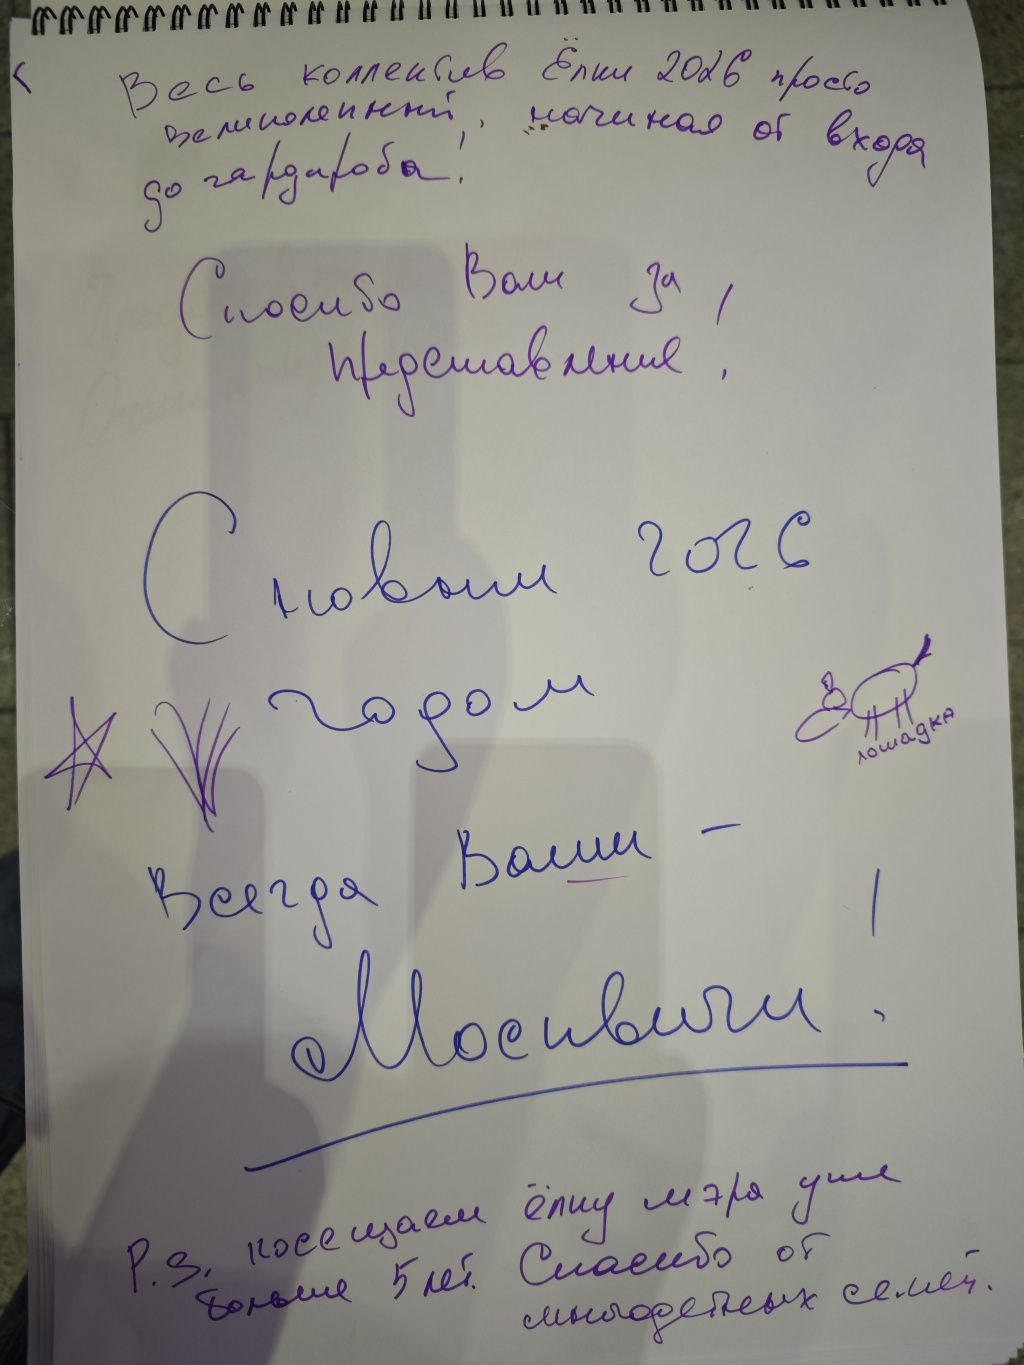 Весь коллектив Ёлки 2026 просто
великолепный, начиная от входа
до гардироба!
Спасибо Вам за
представление!
С новым 2026
годом
лошадка
Всегда Ваши –
Москвичи!
P.S. посещаем ёлку мэра уже
больше 5 лет. Спасибо от
многодетных семей.